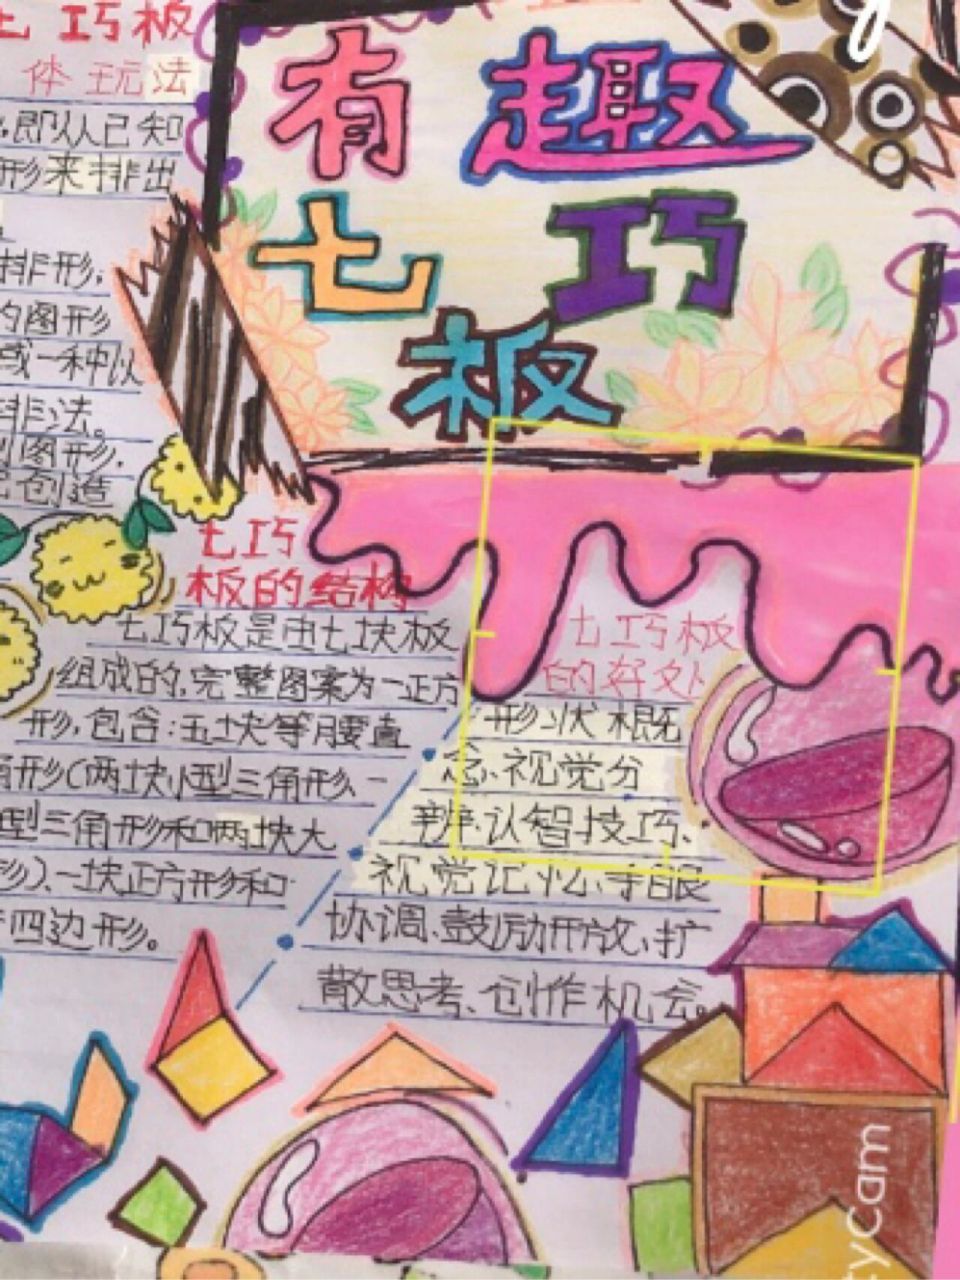 七巧板
体玩法
即以人已知
形来排出
排形,
的图形
或一种以
排法。
图形,
创造
有趣
七巧
板
七巧
板的结构
七巧板是由七块板
组成的,完整图案为一正方
形,包含:五块等腰直
角形(两块小型三角形、一
型三角形和两块大
形)、一块正方形和
四边形。
七巧板
的好处
形状概
念、视觉分
辨、认智技巧、
视觉记忆、手眼
协调、鼓励开放、扩
散思考、创作机会。
yCam